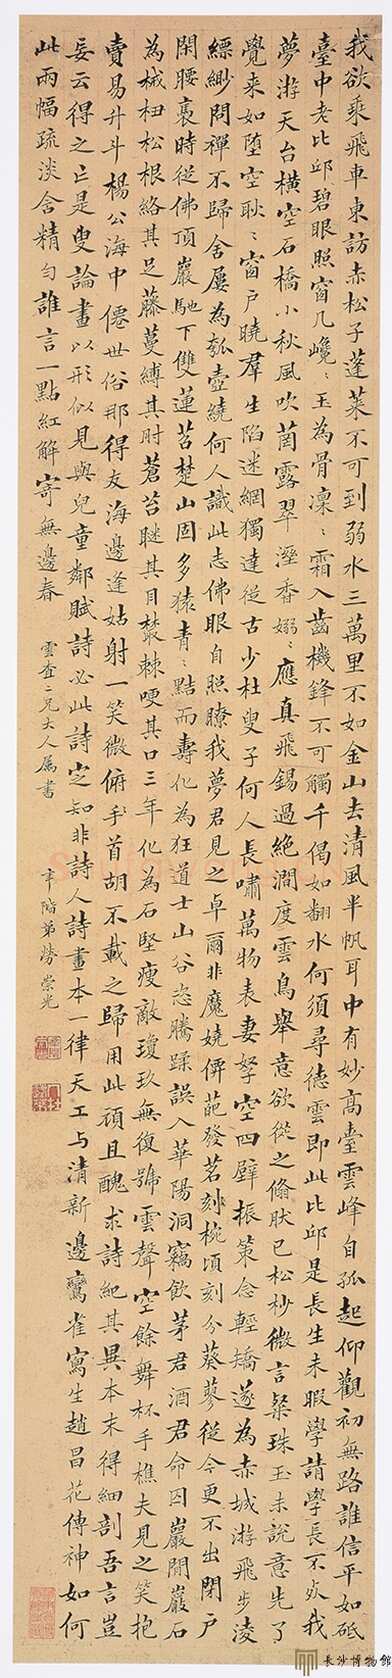 我欲乘飛車東訪赤松子蓬萊不可到弱水三萬里不如金山去清風半帆耳中有妙高臺雲峰自孤起仰觀初無路誰信平如砥
臺中老比邱碧眼照窗几巉〻玉為骨凜〻霜入齒機鋒不可觸千偈如翻水何須尋德雲即此比邱是長生未暇學請學長不死我
夢游天台橫空石橋小秋風吹茵露翠溼香嫋〻應真飛錫過絕澗度雲鳥舉意欲從之翛肰已松杪微言粲珠玉未說意先了
覺來如墮空耿〻窗戶曉羣生陷迷網獨達從古少杜叟子何人長嘯萬物表妻孥空四壁振策念輕矯遂為赤城游飛步淩
縹緲問禪不歸舍屢為瓠壺繞何人識此志佛眼自照瞭我夢君見之卓爾非魔嬈葩發茗刻椀頃刻分葵蓼從今更不出閉戶
閑腰裊時從佛頂巖馳下雙蓮沼楚山固多猿青〻黠而壽化為狂道士山谷恣騰蹂誤入華陽洞竊飲茅君酒君命囚巖間巖石
為械杻松根絡其足藤蔓縛其肘蒼苔瞇其目叢棘哽其口三年化為石堅瘦敵瓊玖無復號雲聲空餘舞杯手樵夫見之笑抱
賣易升斗楊公海中僊世俗那得友海邊逢姑射一笑微俯手首胡不載之歸用此頑且醜求詩紀其異本末得細剖吾言豈
妄云得之亡是叟論畫以形似見與兒童鄰賦詩必此詩定知非詩人詩畫本一律天工与清新邊鸞雀寫生趙昌花傳神如何
此兩幅疏淡含精勻誰言一點紅解寄無邊春
雲查二兄大人屬書
辛階弟勞崇光
長沙博物館